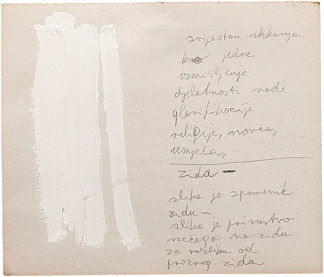 svjestan slikanja
kao jedne
uzvišenije
djelatnosti radi
glorifikacije
religije, novca,
umjeća,
zida —
slika je spomenik
zidu —
slika je prisustvo
nečega na zidu
za razliku od
praznog zida